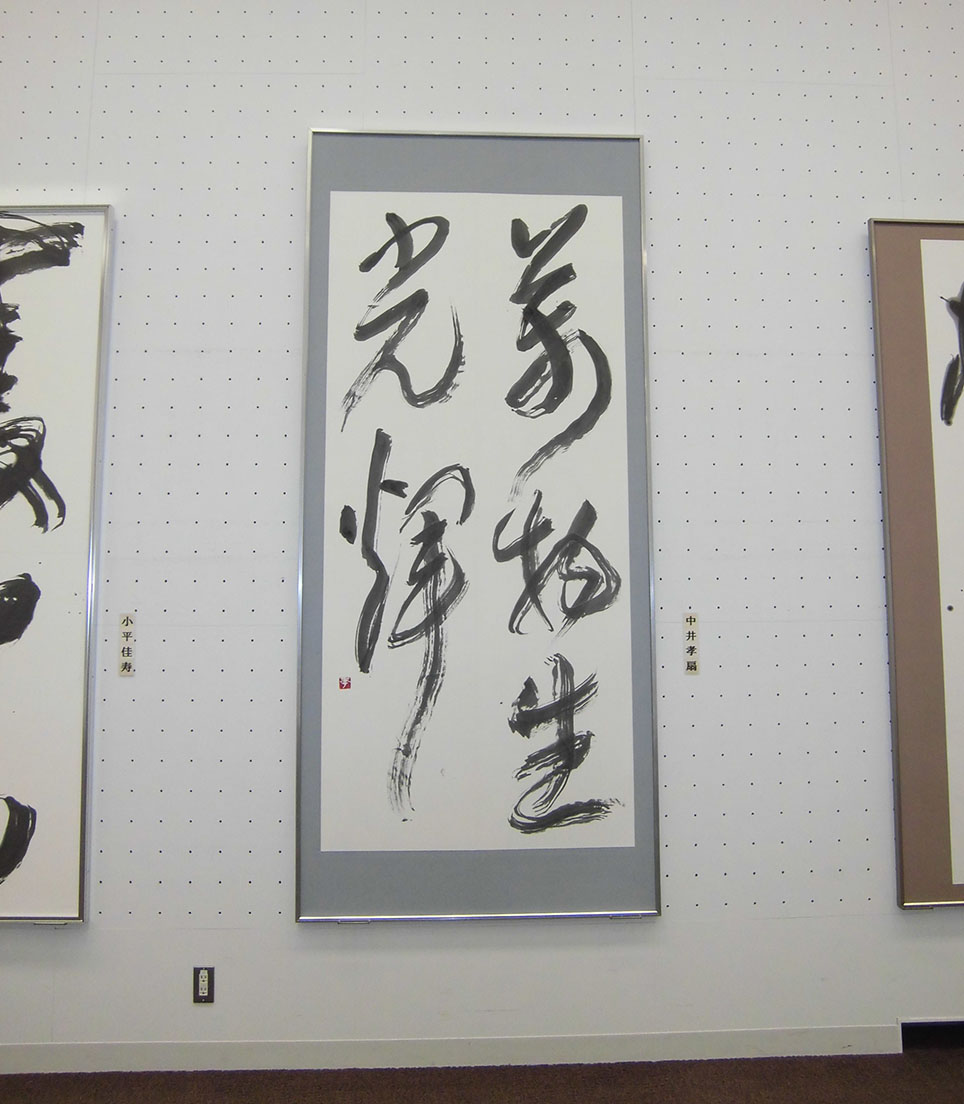 萬物生
光輝
中井孝扇
小平佳寿